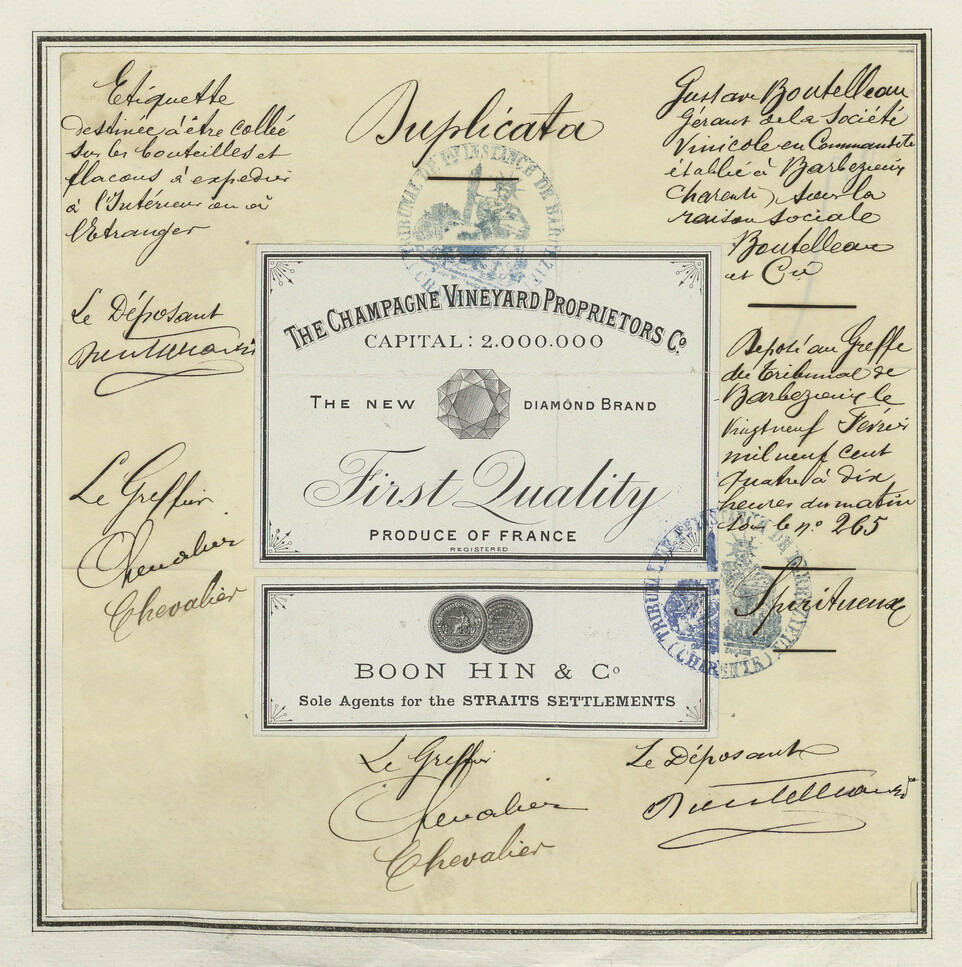 Etiquette
destinée à être collée
sur les bouteilles et
flacons à expedier
à l'Intérieur ou à
l'Etranger
Le Déposant
Le Greffier
Chevalier
Chevalier
Duplicata
TRIBUNAL DE 1re INSTANCE DE BARBEZIEUX
THE CHAMPAGNE VINEYARD PROPRIETORS Co.
CAPITAL: 2.000.000
THE NEW DIAMOND BRAND
First Quality
PRODUCE OF FRANCE
REGISTERED
BOON HIN & Co
Sole Agents for the STRAITS SETTLEMENTS
Gustave Boutelleau
Gérant de la Société
Vinicole en Commandite
établie à Barbezieux
Charente) sous la
raison sociale
Boutelleau
et Cie
Déposé au Greffe
du tribunal de
Barbezieux le
Vingt neuf Février
mil neuf cent
quatre à dix
heures du matin
sous le no 265
TRIBUNAL DE 1re INSTANCE DE BARBEZIEUX
(CHARENTE)
Spiritueux
Le Greffier
Chevalier
Chevalier
Le Déposant
Boutelleau